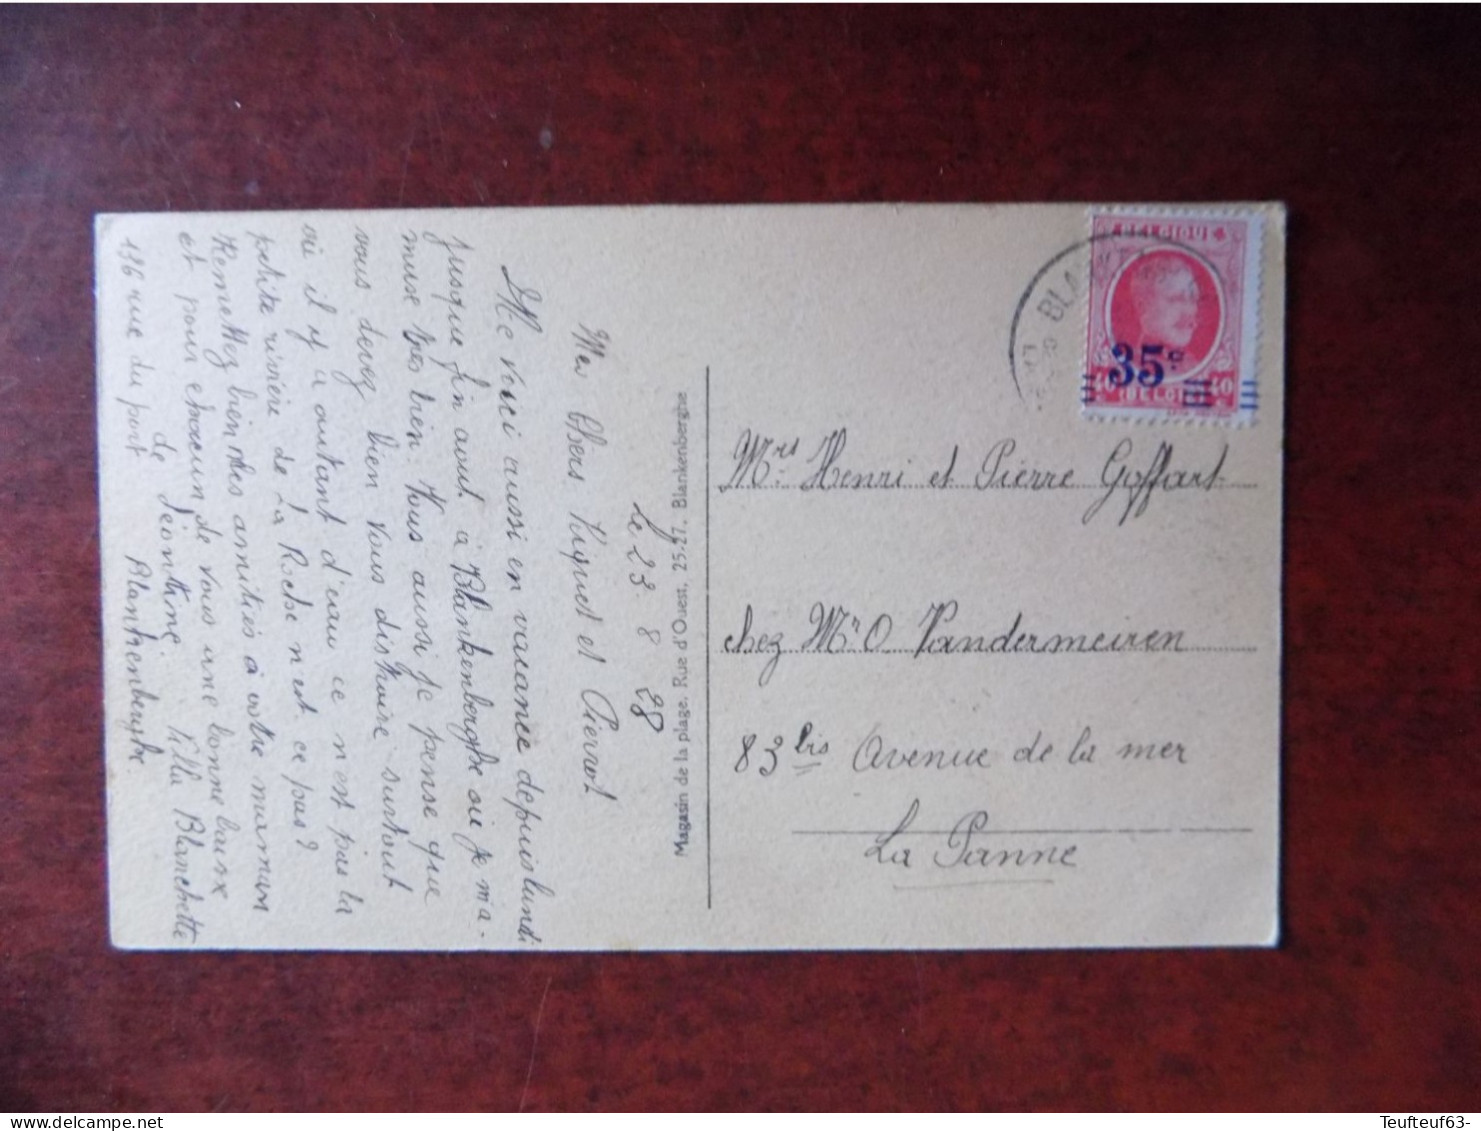 Le 23 8 28
Mes Chers Riquet et Pierrot
Me voici aussi en vacance depuis lundi
jusque fin aout à Blankenberghe où je m'a-
muse très bien. Vous aussi je pense que
vous devez bien vous distraire surtout
où il y a autant d'eau ce n'est pas la
petite rivière de La Roche n'est ce pas?
Remettez bien des amitiés à votre maman
et pour chacun de vous une bonne baise
de Léontine Villa Blanchette
136 rue du port Blankenberghe.
Magasin de la plage, Rue d'Ouest, 25-27, Blankenberghe
BELGIQUE
35c
40 40
BELGI
BLA
Mrs Henri et Pierre Goffart
chez Mr O Vandermeiren
83 bis Avenue de la mer
La Panne
delcampe.net
Teufteuf63-